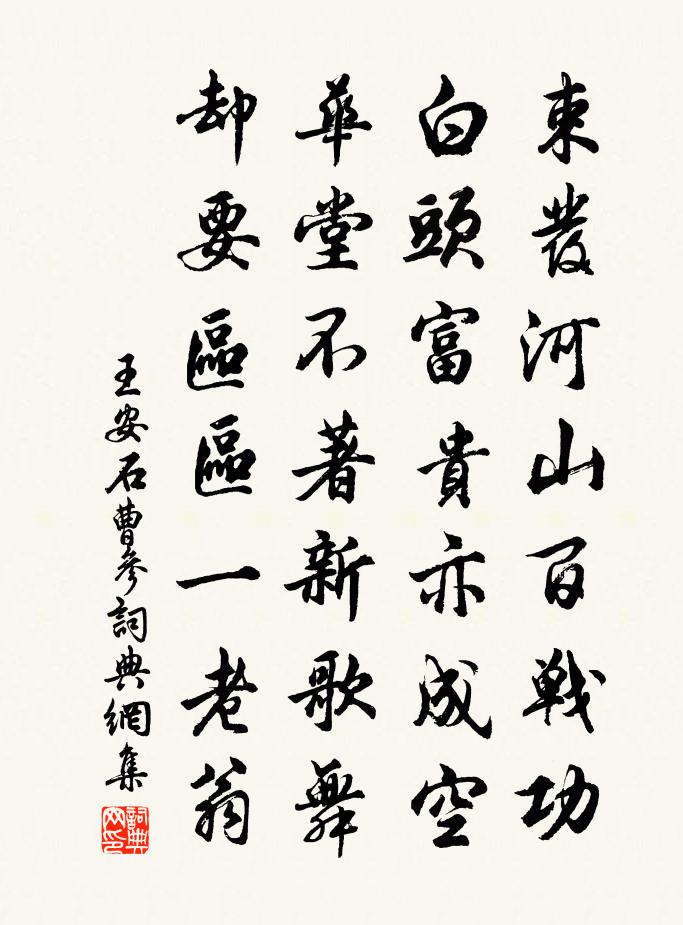 束髮河山百戰功
白頭富貴亦成空
華堂不著新歌舞
却要區區一老翁
王安石曹參詞典網集
詞典网印